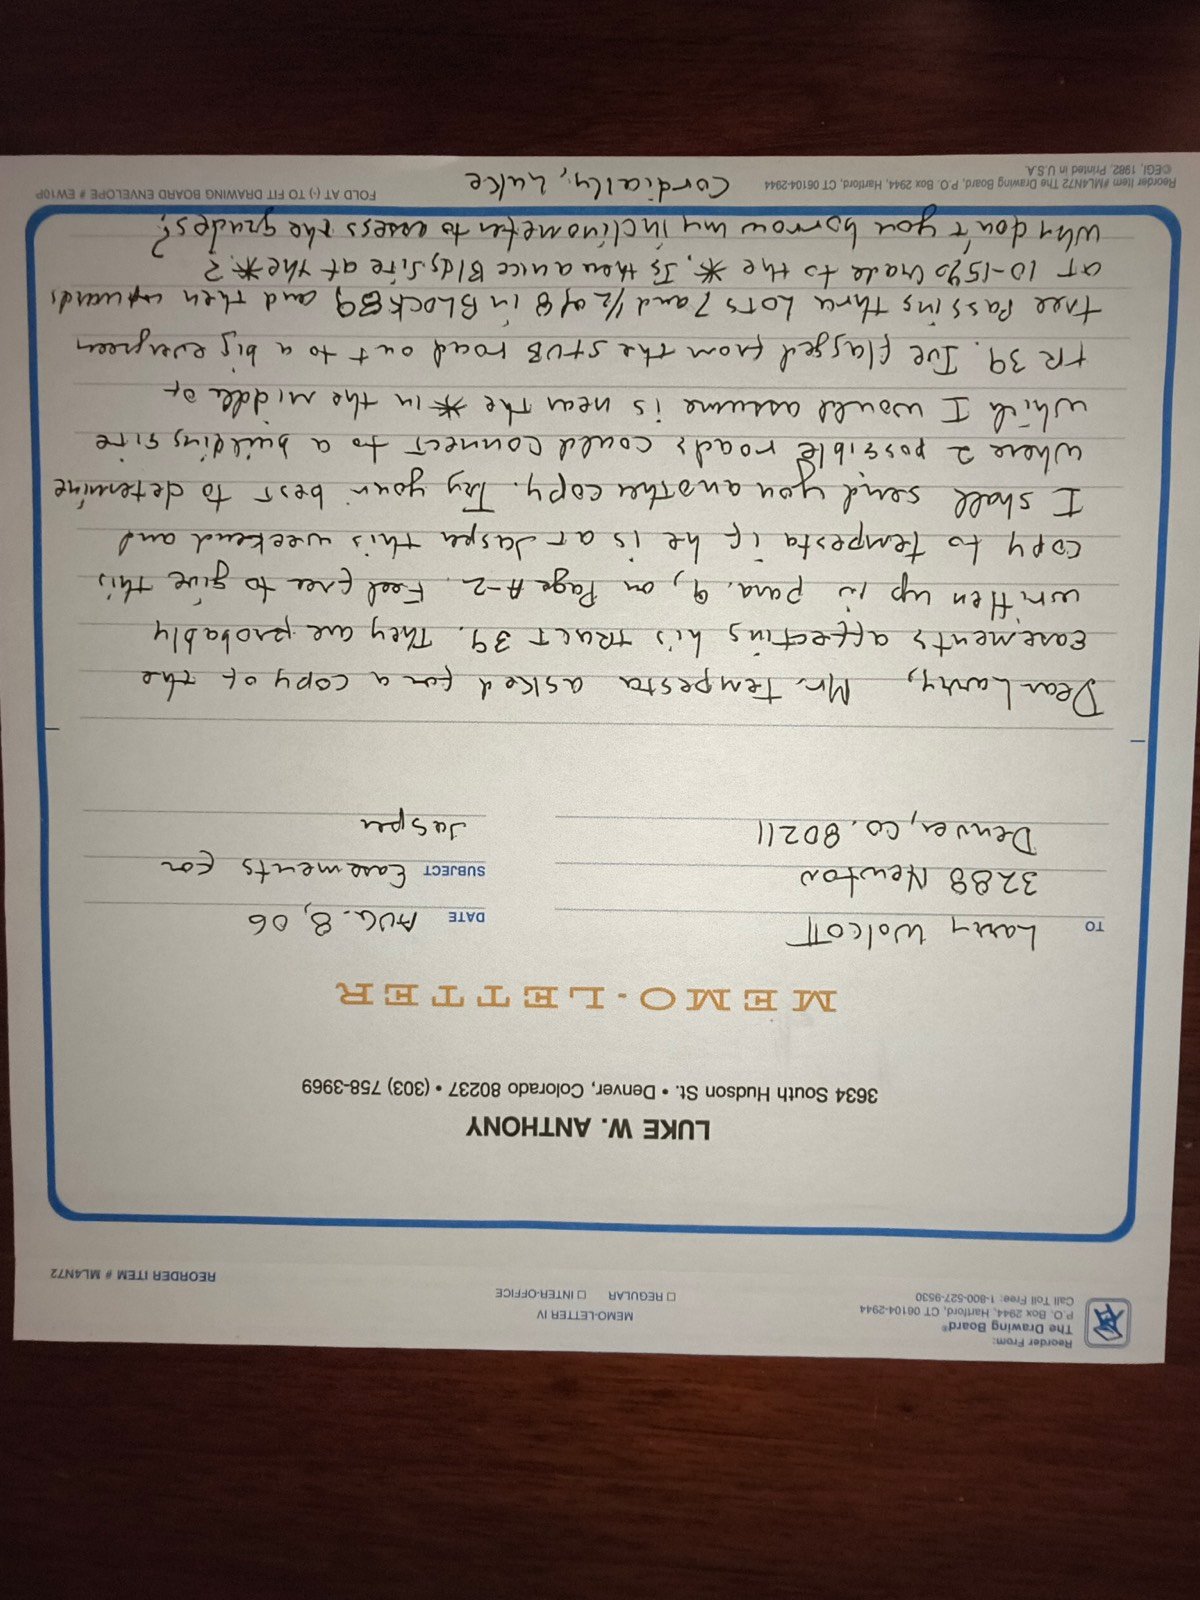 Reorder From:
The Drawing Board®
P.O. Box 2944, Hartford, CT 06104-2944
Call Toll Free: 1-800-527-9530
MEMO-LETTER IV
☐ REGULAR ☐ INTER-OFFICE
REORDER ITEM # ML4N72
LUKE W. ANTHONY
3634 South Hudson St. • Denver, Colorado 80237 • (303) 758-3969
MEMO-LETTER
TO Larry Wolcott
3288 Newton
Denver, Co. 80211
DATE AUG. 8, 06
SUBJECT Easements for
Jasper
Dear Larry, Mr. Tempesta asked for a copy of the
easements affecting his TRACT 39. They are probably
written up in para. 9, on Page A-2. Feel free to give this
copy to Tempesta if he is at Jasper this weekend and
I shall send you another copy. Try your best to determine
where 2 possible roads could connect to a building site
which I would assume is near the * in the middle of
TR 39. I've flagged from the STUB road out to a big evergreen
tree Passing thru LOTS 7 and ½ of 8 in BLOCK 89 and then upwards
at 10-15% Grade to the *. Is there a nice Bldg Site at the *?
Why don't you borrow my inclinometer to assess the grades?
Cordially, Luke
Reorder Item #ML4N72 The Drawing Board, P.O. Box 2944, Hartford, CT 06104-2944
©EGI, 1982, Printed in U.S.A.
FOLD AT (-) TO FIT DRAWING BOARD ENVELOPE # EW10P